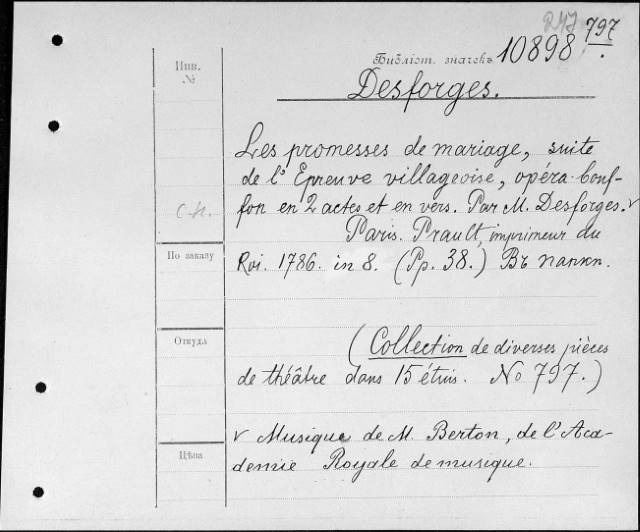 797
Библіот. значекъ 10898.
Инв.
№
Desforges.
Les promesses de mariage, suite
de l'Epreuve villageoise, opéra-bouf-
fon en 2 actes et en vers. Par M. Desforges. v
Paris. Prault, imprimeur du
По заказу
Roi. 1786. in 8. (Pp. 38.) Въ папкѣ.
Откуда
(Collection de diverses pièces
de théâtre dans 15 étuis. No 797.)
v Musique de M. Berton, de l'Aca-
Цѣна
demie Royale de musique.